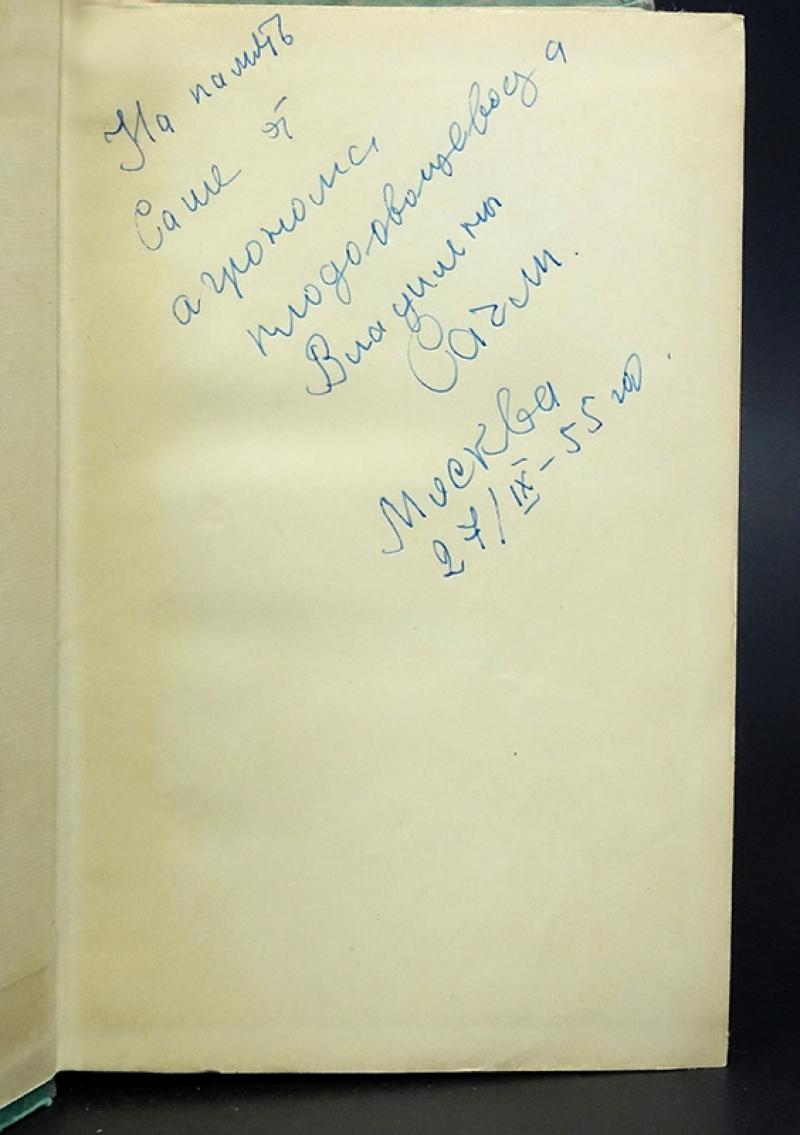 На память
Саше от
агронома
плодоовощевода
Владилены
Москва
27/IX-55 год.